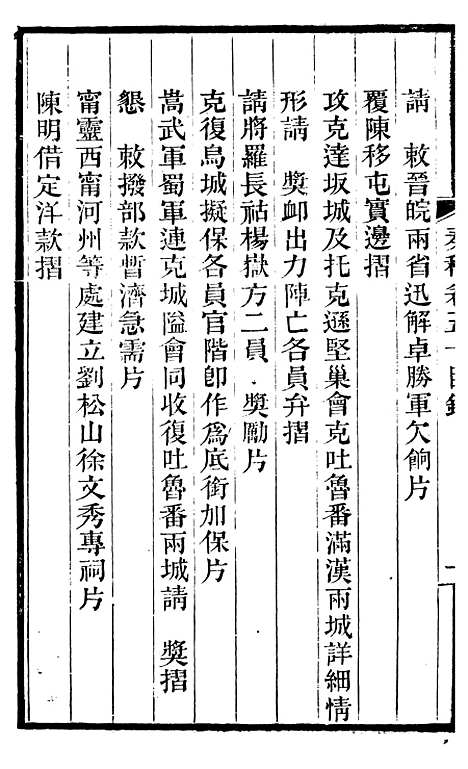 請　敕晉皖兩省迅解卓勝軍欠餉片
覆陳移屯實邊摺
攻克達坂城及托克遜堅巢會克吐魯番滿漢兩城詳細情
形請　獎卹出力陣亡各員弁摺
請將羅長祜楊嶽方二員　獎勵片
克復烏城擬保各員官階卽作爲底銜加保片
嵩武軍蜀軍連克城隘會同收復吐魯番兩城請　獎摺
懇　敕撥部款暫濟急需片
甯靈西甯河州等處建立劉松山徐文秀專祠片
陳明借定洋款摺